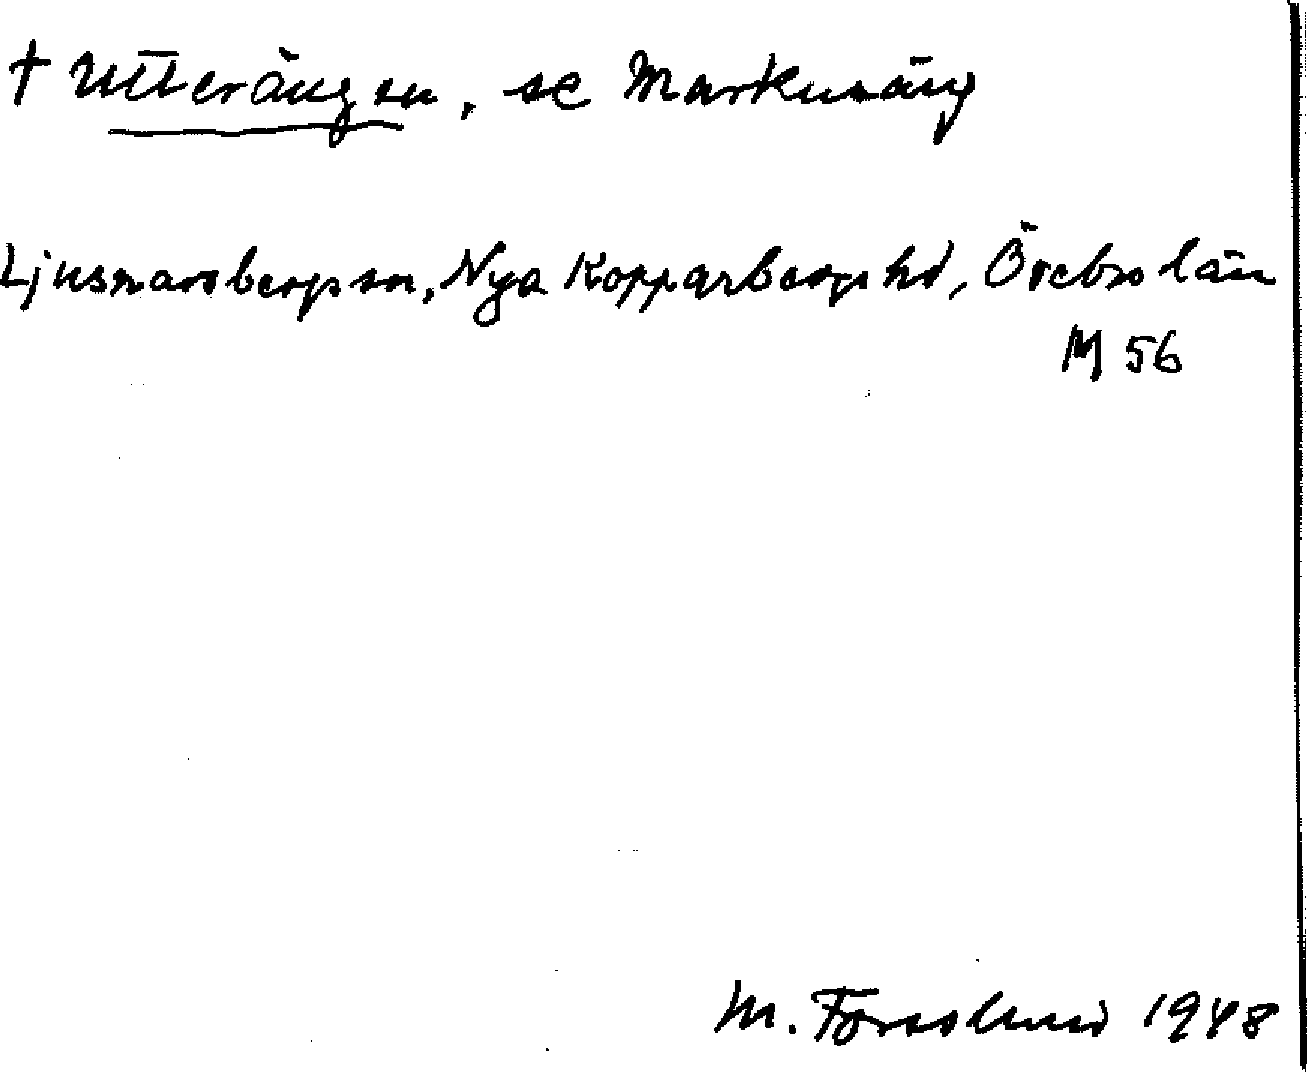 † Utterängen, se Markusäng
Ljusnarsbergs sn, Nya Kopparbergs hd, Örebro län
M 56
M. Forsslund 1948